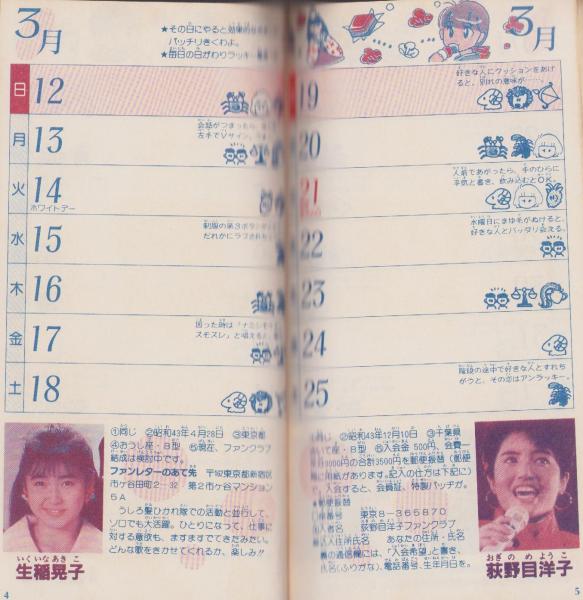 3月
★その日にやると効果的な
バッチリきくわよ。
★毎日の日がわりラッキー
日 12
月 13
会話がつまったら、
左手でVサイン。
火 14
ホワイトデー
水 15
制服の第3ボタン
だれかにラブされちゃ
木 16
金 17
困った時は「ナ
スモスレ」と唱える
土 18
①同じ ②昭和43年4月28日 ③東京都
④おうし座・B型 ⑤現在、ファンクラブ
結成は検討中です。
ファンレターのあて先 〒162東京都新宿区
市ヶ谷田町2-32 第2市ヶ谷マンション
5A
うしろ髪ひかれ隊での活動と並行して、
ソロでも大活躍。ひとりになって、仕事に
対する意欲も、ますますでてきたみたい。
どんな歌をきかせてくれるか、楽しみ!!
いくいなあきこ
生稲晃子
4
3月
19
好きな人にクッションをあげ
ると、別れの意味が……。
20
21
人前であがったら、手のひらに
手気と書き、飲み込むとOK。
22
水曜日にまゆ毛がぬけると、
好きな人とバッタリ会える。
23
24
25
階段の途中で好きな人とすれち
がうと、その恋はアンラッキー。
①同じ ②昭和43年12月10日 ③千葉県
いて座・B型 ⑤入会金500円、会費一
年分3000円の合計3500円を郵便振替(郵便
局に用紙があります。記入の仕方は下記に)
で、入会すると、会員証、特製バッヂが。
●郵便振替
口座番号 東京8-365870
加入者名 荻野目洋子ファンクラブ
払込人住所氏名 あなたの住所・氏名
裏の通信欄には、「入会希望」と書き、
氏名(ふりがな)、電話番号、生年月日を。
おぎのめようこ
荻野目洋子
5